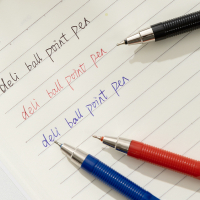 deli ball point pen
deli ball point pen
deli ball point pen